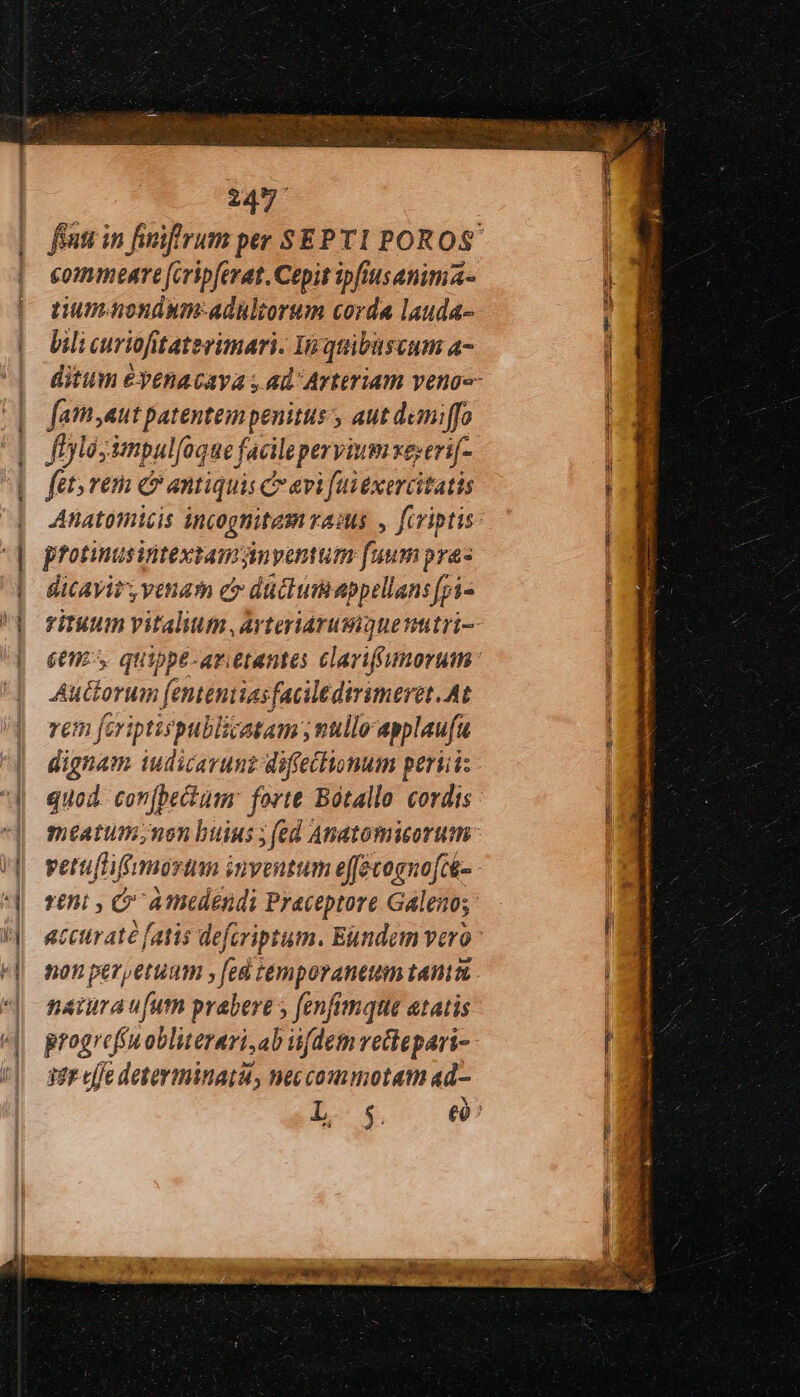 247
ſinu in ſiniſtrum per SEPTI POROS
commeare ſcripſerat. Cepit ipſius anima-
tium nondum adultorum corda lauda-
bili curioſitate rimari. In quibus cum a-
ditum è vena cava, ad Arteriam veno-
ſam, aut patentem penitus, aut demiſſo
ſtylo, impulſoque facile pervium reperiſ-
ſet, rem & antiquis & ævi ſui exercitatis
Anatomicis incognitam ratus, ſcriptis
protinus intextam inventum ſuum præ-
dicavit, venam & ductum appellans ſpi-
rituum vitalium, arteriarumque nutri-
cem, quippe arietantes clariſſimorum
Auctorum ſententias facile dirimeret. At
rem ſcriptis publicatam, nullo applauſu
dignam iudicarunt diſſectionum periti:
quod conſpectum forte Botallo cordis
meatum, non huius, ſed Anatomicorum
vetuſtiſſimorum inventum eſſe cognoſce-
rent, & à medendi Præceptore Galeno,
accuratè ſatis deſcriptum. Eundem verò
non perpetuum, ſed temporaneum tantū
natura uſum præbere, ſenſimque ætatis
progreſſu obliterari, ab iiſdem rectè pari-
ter eſſe determinatū, nec commotam ad-
L 5. eò